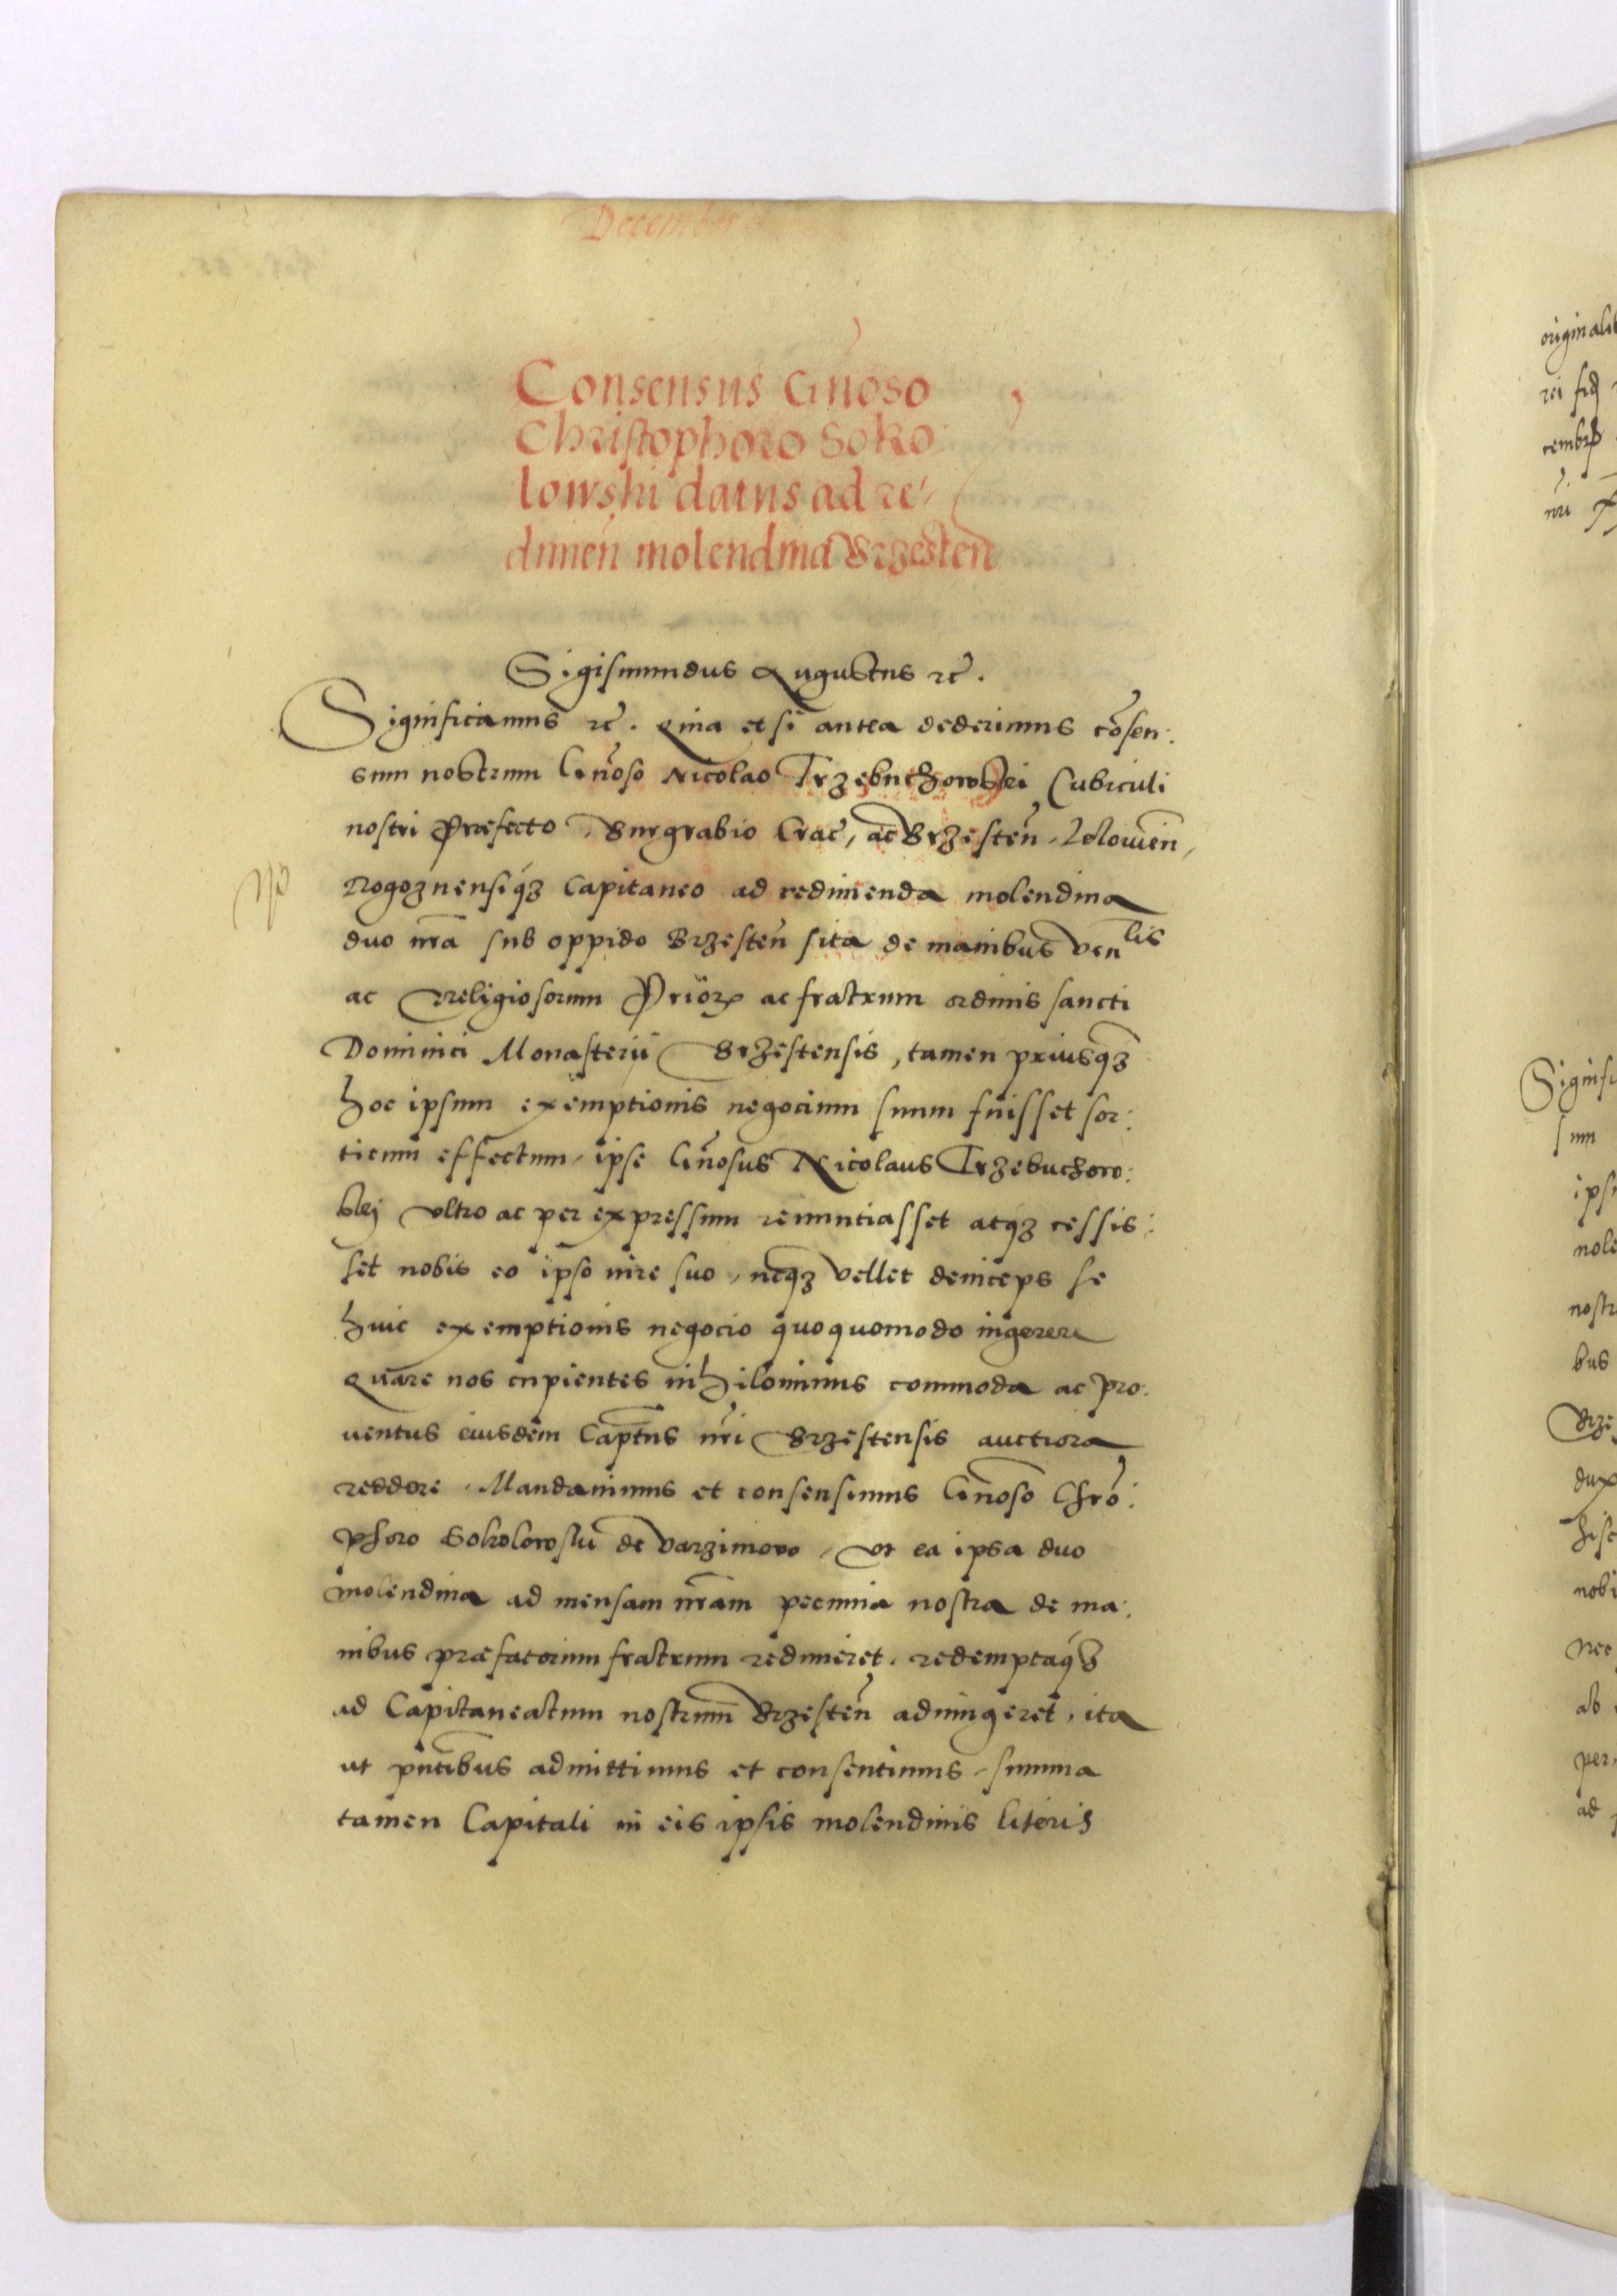 Decembr
Consensus Gnoso
Christophoro Soko
lowski datus ad re-
dimen molendina Brzesten
Sigismundus Augustus rc.
Significamus rc. Quia etsi antea dederimus cõsen:
sum nostrum Gnoso Nicolao Trzebuchowskei Cubiculi
nostri Præfecto, Burgrabio Crac, ac Brzesten,
Rogoznensiq3 Capitaneo ad redimenda molendina
duo nra sub oppido Brzesten sita de manibus Venlis
ac Religiosorum Prior ac fratrum ordinis sancti
Dominici Monasterii Brzestensis, tamen priusq3
hoc ipsum exemptionis negocium suum fuisset sor:
titum effectum, ipse Gnosus Nicolaus Trzebuchow:
skij ultro ac per expressum renuntiasset atq3 cessis:
set nobis eo ipso iure suo, neq3 vellet deinceps se
huic exemptionis negocio quoquomodo ingerere
Quare nos cupientes nihilominus commoda ac pro:
uentus eiusdem Captus nri Brzestensis auctiora
reddere, Mandauimus et consensimus Gnoso Chro:
phoro Sokolowski de Varzimowo, ut ea ipsa duo
molendina ad mensam nram pecunia nostra de ma:
nibus præfatorum fratrum redimeret, redemptaq3
ad Capitaneatum nostrum Brzesten adiungeret, ita
ut pntibus admittimus et consentimus, summa
tamen Capitali in eis ipsis molendinis literis
originalib
rei fid
cembr
nri
Signifi
sum
ips
mole
nostr
bus
Brze
dux
hisc
nobi
nec
ab
per
ad